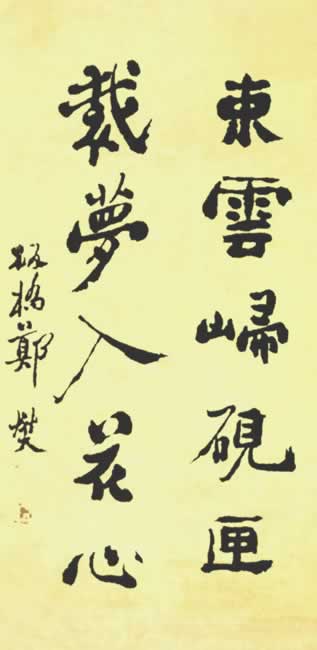 束雲歸硯匣
裁夢入花心
板橋鄭燮